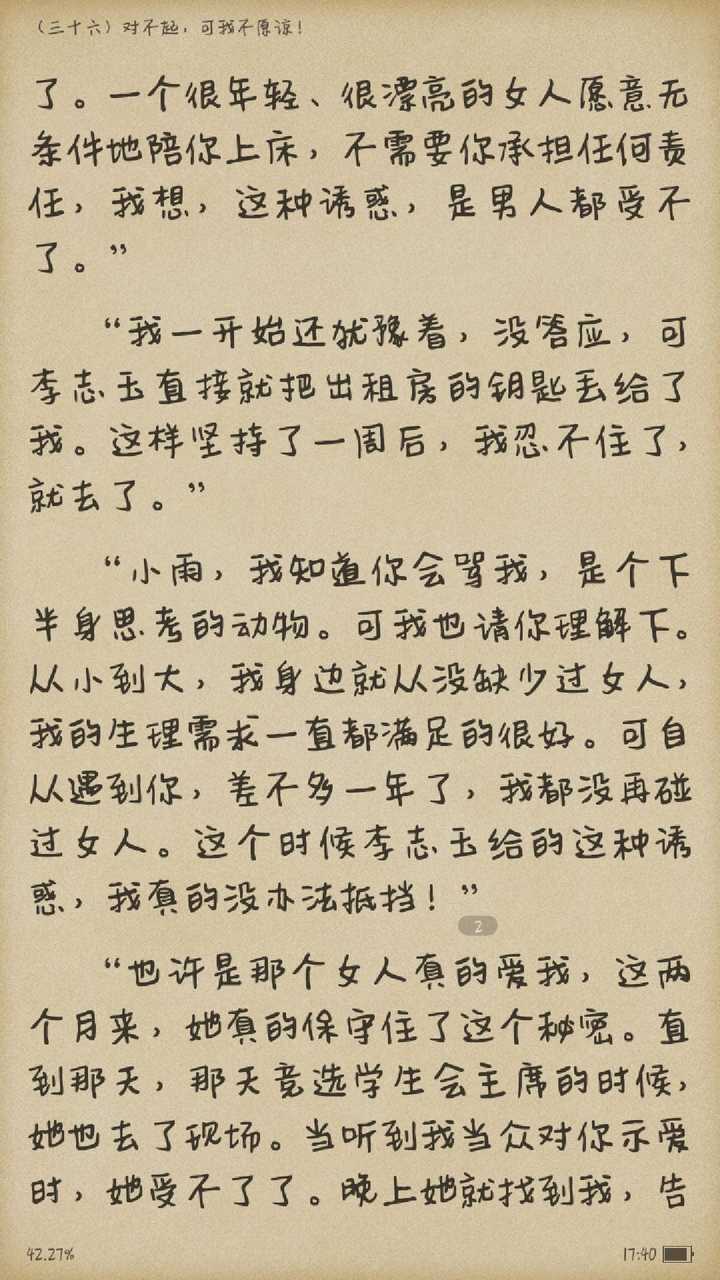 （三十六）对不起，可我不原谅！
了。一个很年轻、很漂亮的女人愿意无
条件地陪你上床，不需要你承担任何责
任，我想，这种诱惑，是男人都受不
了。”
“我一开始还犹豫着，没答应，可
李志玉直接就把出租房的钥匙丢给了
我。这样坚持了一周后，我忍不住了，
就去了。”
“小雨，我知道你会骂我，是个下
半身思考的动物。可我也请你理解下。
从小到大，我身边就从没缺少过女人，
我的生理需求一直都满足的很好。可自
从遇到你，差不多一年了，我都没再碰
过女人。这个时候李志玉给的这种诱
惑，我真的没办法抵挡！”
2
“也许是那个女人真的爱我，这两
个月来，她真的保守住了这个秘密。直
到那天，那天竞选学生会主席的时候，
她也去了现场。当听到我当众对你示爱
时，她受不了了。晚上她就找到我，告
42.27%
17:40